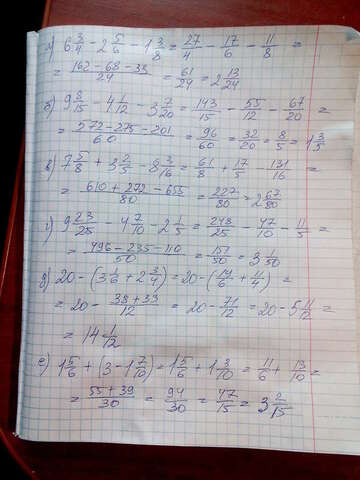 а) 6 3/4 - 2 5/6 - 1 3/8 = 27/4 - 17/6 - 11/8 =
= (162 - 68 - 33)/24 = 61/24 = 2 13/24
б) 9 8/15 - 4 7/12 - 3 7/20 = 143/15 - 55/12 - 67/20 =
= (272 - 275 - 201)/60 = 96/60 = 32/20 = 8/5 = 1 3/5
в) 7 5/8 + 3 2/5 - 8 3/16 = 61/8 + 17/5 - 131/16 =
= (610 + 272 - 655)/80 = 227/80 = 2 67/80
г) 9 23/25 - 4 7/10 - 2 1/5 = 248/25 - 47/10 - 11/5 =
= (496 - 235 - 110)/50 = 151/50 = 3 1/50
д) 20 - (3 1/6 + 2 3/4) = 20 - (19/6 + 11/4) =
= 20 - (38 + 33)/12 = 20 - 71/12 = 20 - 5 11/12 =
= 14 1/12
е) 1 5/6 + (3 - 1 7/10) = 1 5/6 + 1 3/10 = 11/6 + 13/10 =
= (55 + 39)/30 = 94/30 = 47/15 = 3 2/15